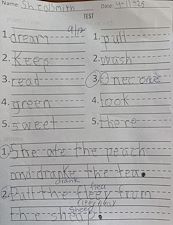 Name: Sh Smith Date: 9-11-25
TEST
9/12
1. dream
1. pull
2. Keep
2. wash
3. read
3. once
4. green
4. look
5. sweet
5. there
1. She ate the peach
and dranke the tea.
drank
2. Pull the fleey from
the sheep.